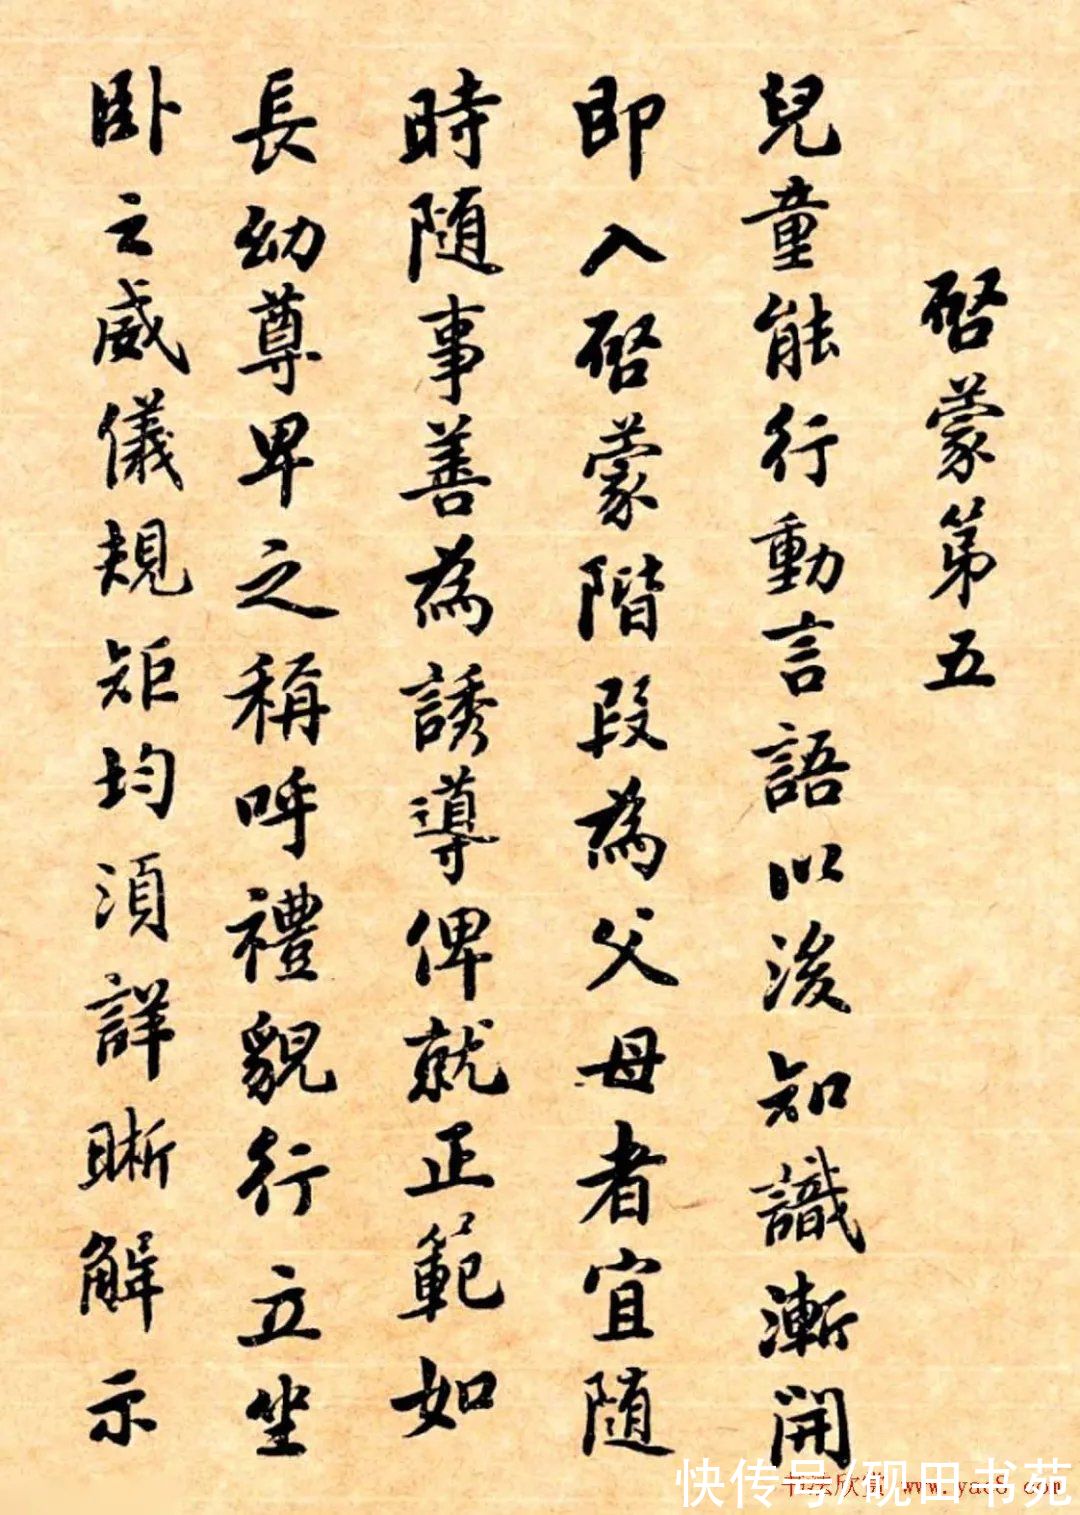 啓蒙第五
兒童能行動言語以後知識漸開
即入啓蒙階段為父母者宜隨
時随事善為誘導俾就正範如
長幼尊卑之稱呼禮貌行立坐
卧之威儀規矩均須詳晰解示
快传号/砚田书苑
书法欣赏 www.yac8.com